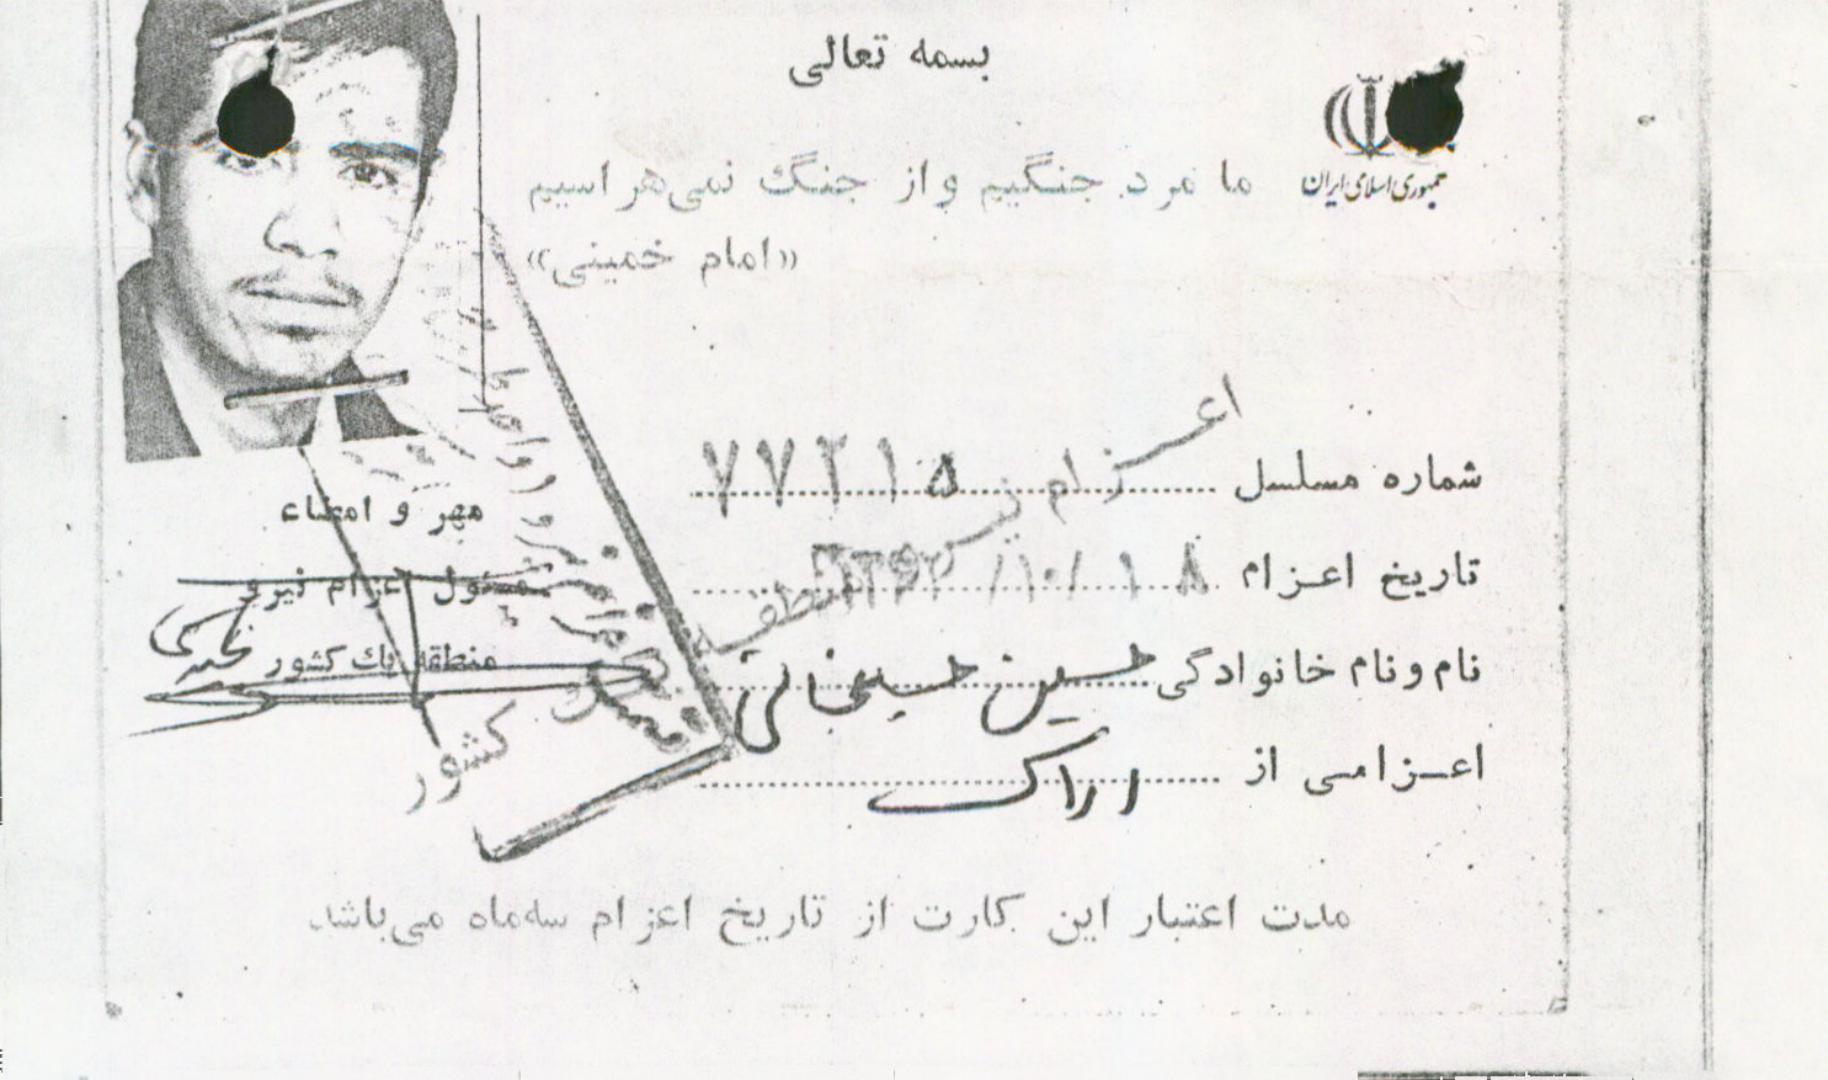 بسمه تعالی
جمهوری اسلامی ایران
ما مرد جنگیم و از جنگ نمی‌هراسیم
«امام خمینی»
شماره مسلسل ۷۷۲۱۵
تاریخ اعزام ۱۳۶۲/۱۰/۱۸
نام و نام خانوادگی حسین حسینخانی
اعزامی از اراک
مهر و امضاء
مسئول اعزام نیرو
منطقه یک کشور
اعزام نیرو
منطقه
کشور
مدت اعتبار این کارت از تاریخ اعزام سه‌ماه می‌باشد.